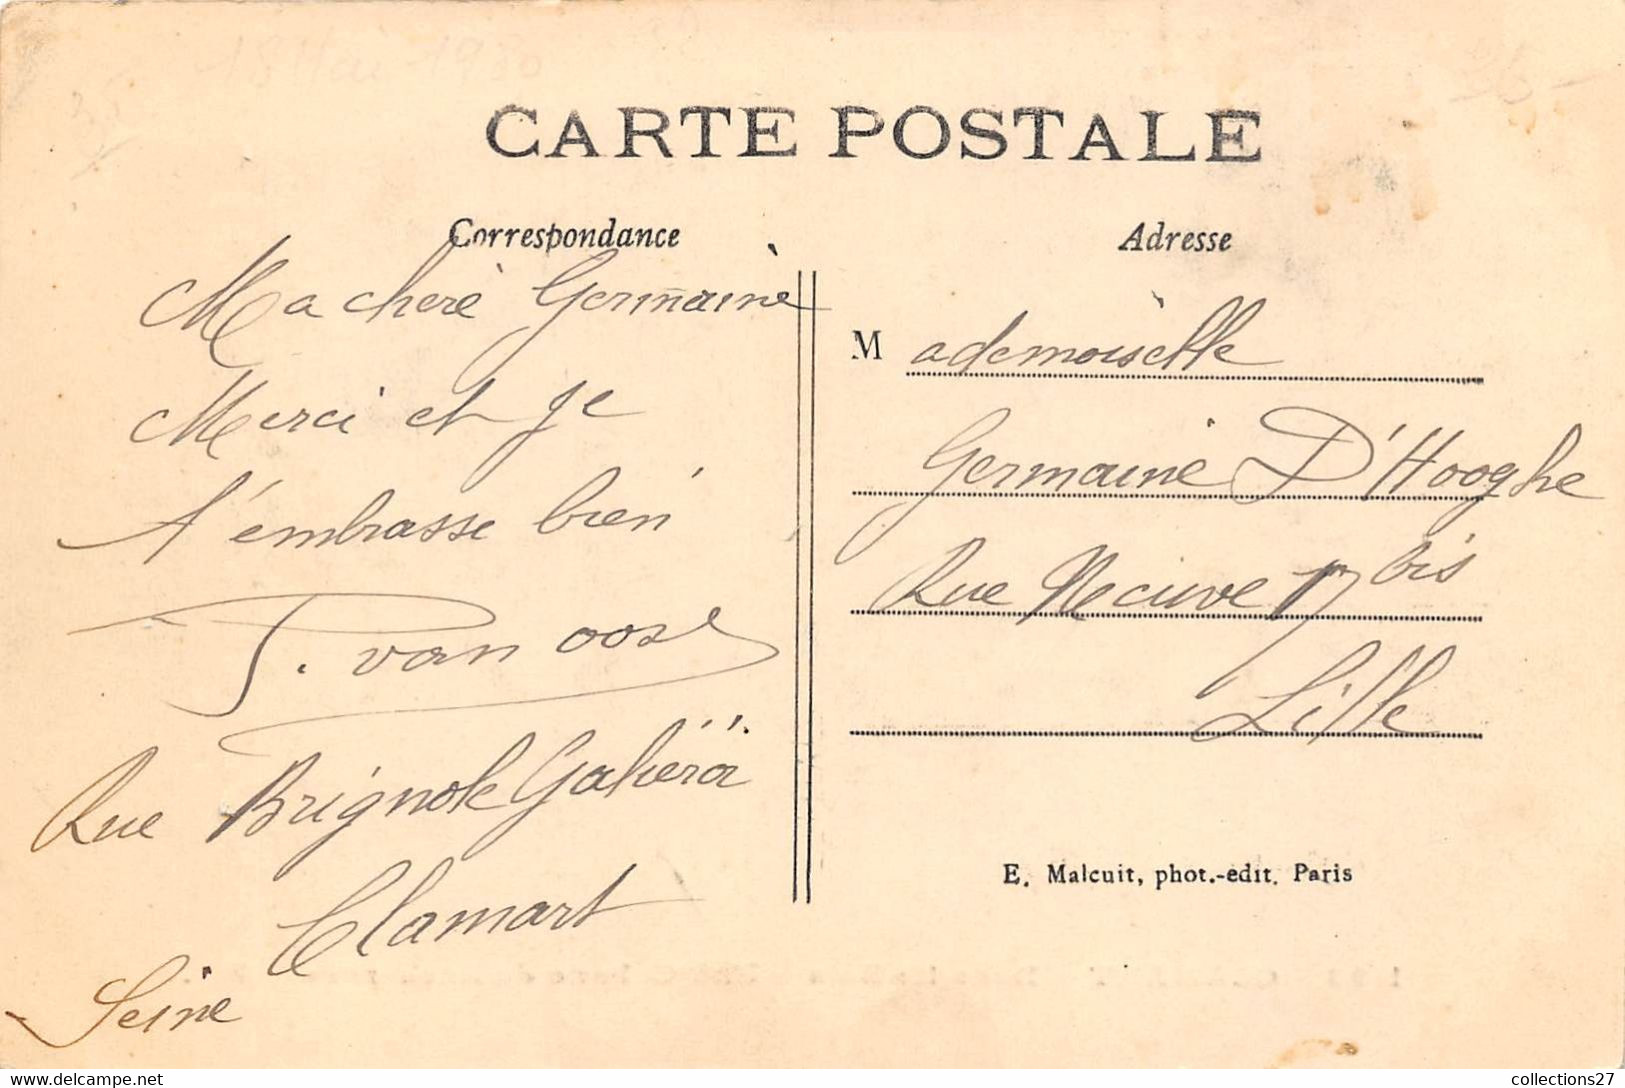 18 Mai 1930
35
CARTE POSTALE
Correspondance
Ma chere Germaine
Merci et je
t'embrasse bien
van oost
Rue Brignole Galiera
Clamart
Seine
Adresse
Mademoiselle
Germaine D'Hooghe
Rue Neuve 17 bis
Lille
E. Malcuit, phot.-edit. Paris
collections27